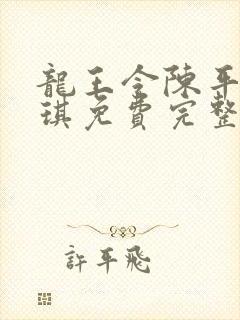 龍王令陳平
琪免費完整
許平飛